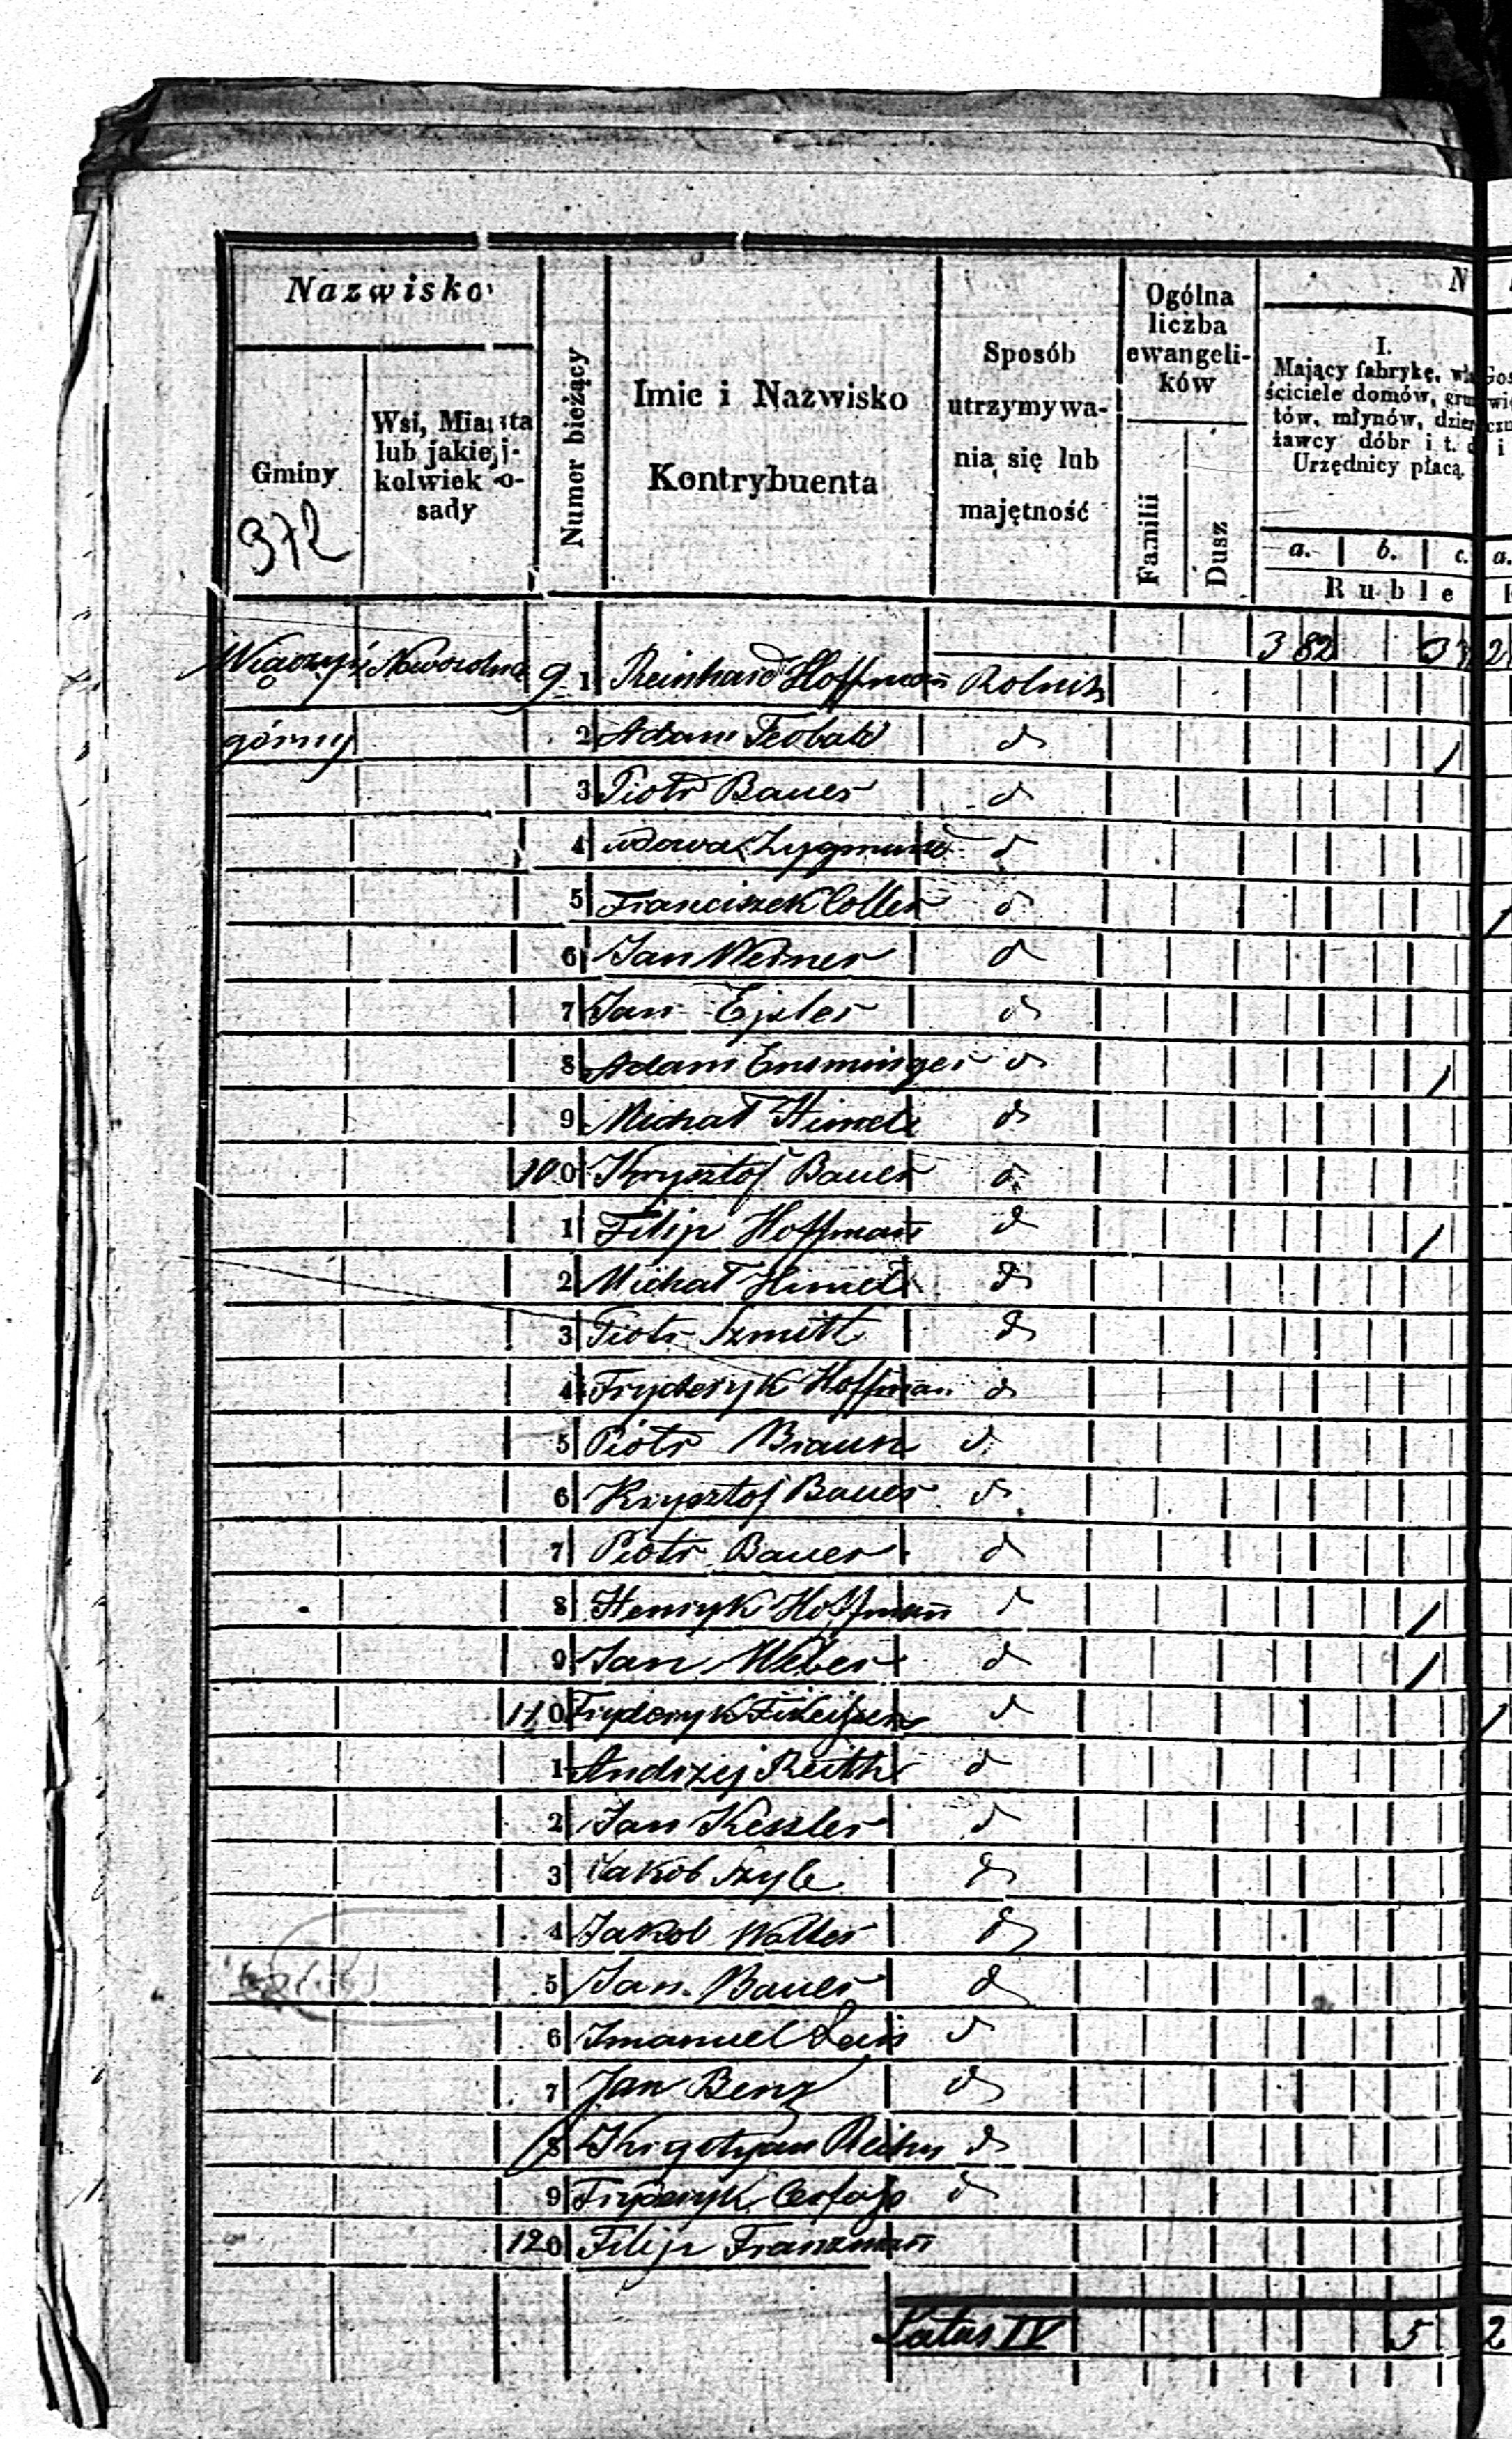 Nazwisko
Gminy
372
Wsi, Miasta
lub jakiej-
kolwiek o-
sady
Numer bieżący
Imie i Nazwisko
Kontrybuenta
Sposób
utrzymywa-
nia się lub
majętność
Ogólna
liczba
ewangeli-
ków
Familii
Dusz
I.
Mający fabrykę, wła
ściciele domów, grun
tów, młynów, dzier
żawcy dóbr i t. d
Urzędnicy płacą
a. b. c. a.
Ruble
Wiączyń Nowosolna 91 Reinhard Hoffmañ Rolnik 3 82
górny 2 Adam Teobald d
3 Piotr Bauer d
4 wdowa Zygmund d
5 Franciszek Coller d
6 Jan Werner d
7 Jan Ejzler d
8 Adam Ensminger d
9 Michał Himel d
100 Krysztof Bauer d
1 Filip Hoffmañ d
2 Michał Himel d
3 Piotr Szmitt d
4 Fryderyk Hoffman d
5 Piotr Braun d
6 Krysztof Bauer d
7 Piotr Bauer d
8 Henryk Hoffmañ d
9 Jan Weber d
110 Fryderyk d
1 Andrzej Reith d
2 Jan Kessler d
3 Jakob Szyle d
4 Jakob Walter d
5 Jan Bauer d
6 Imanuel d
7 Jan Benz d
8 Krystyan d
9 Fryderyk d
120 Filip Franzmañ
Latus IV 5 2